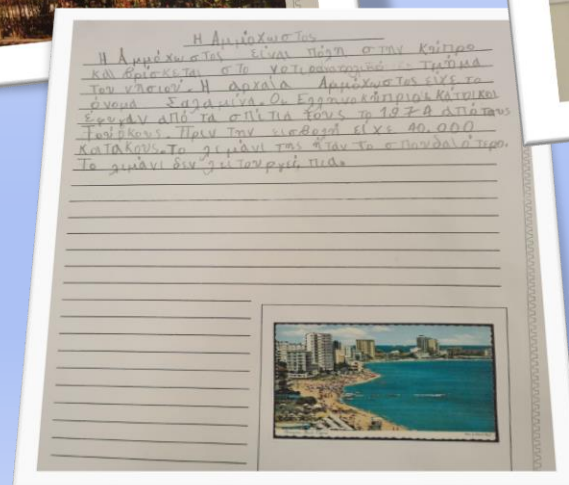 Η Αμμόχωστος
Η Αμμόχωστος είναι πόλη στην Κύπρο
και βρίσκεται στο νοτιοανατολικό τμήμα
του νησιού. Η αρχαία Αμμόχωστος είχε το
όνομα Σαλαμίνα. Οι Ελληνοκύπριοι κάτοικοι
έφυγαν από τα σπίτια τους το 1974 από τους
Τούρκους. Πριν την εισβολή είχε 40.000
κατακους. Το λιμάνι της ήταν το σπουδαιότερο.
Το λιμάνι δεν λειτουργεί πια.